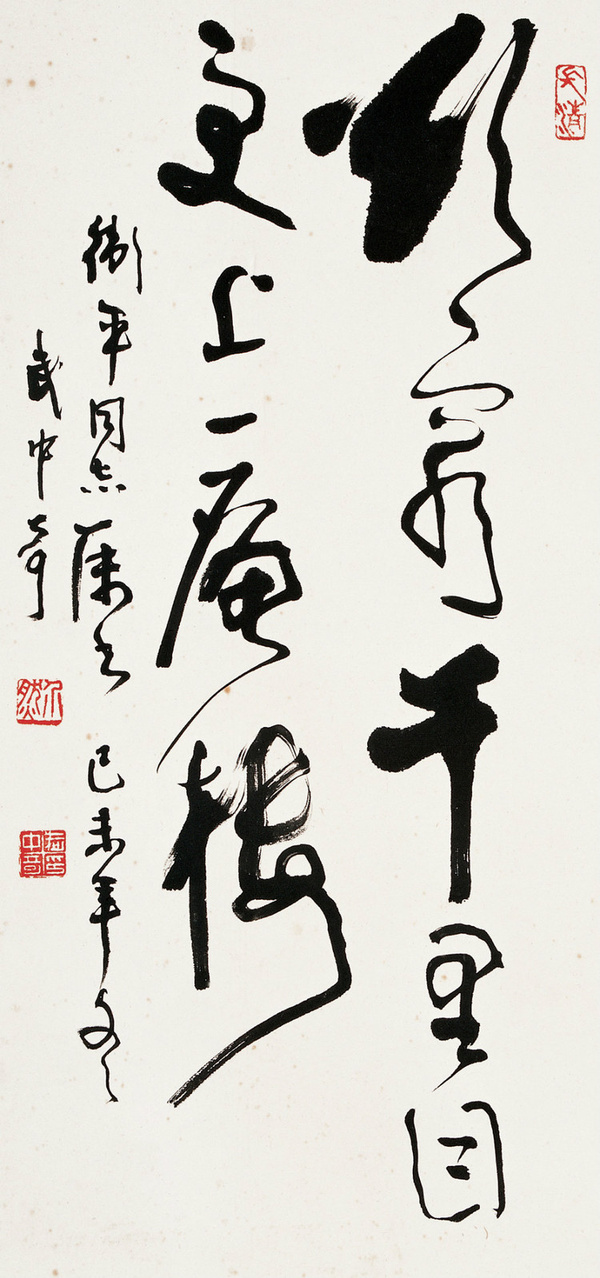 欲窮千里目
更上一層樓
衛平同志屬書 己未年冬
武中奇
武印中奇